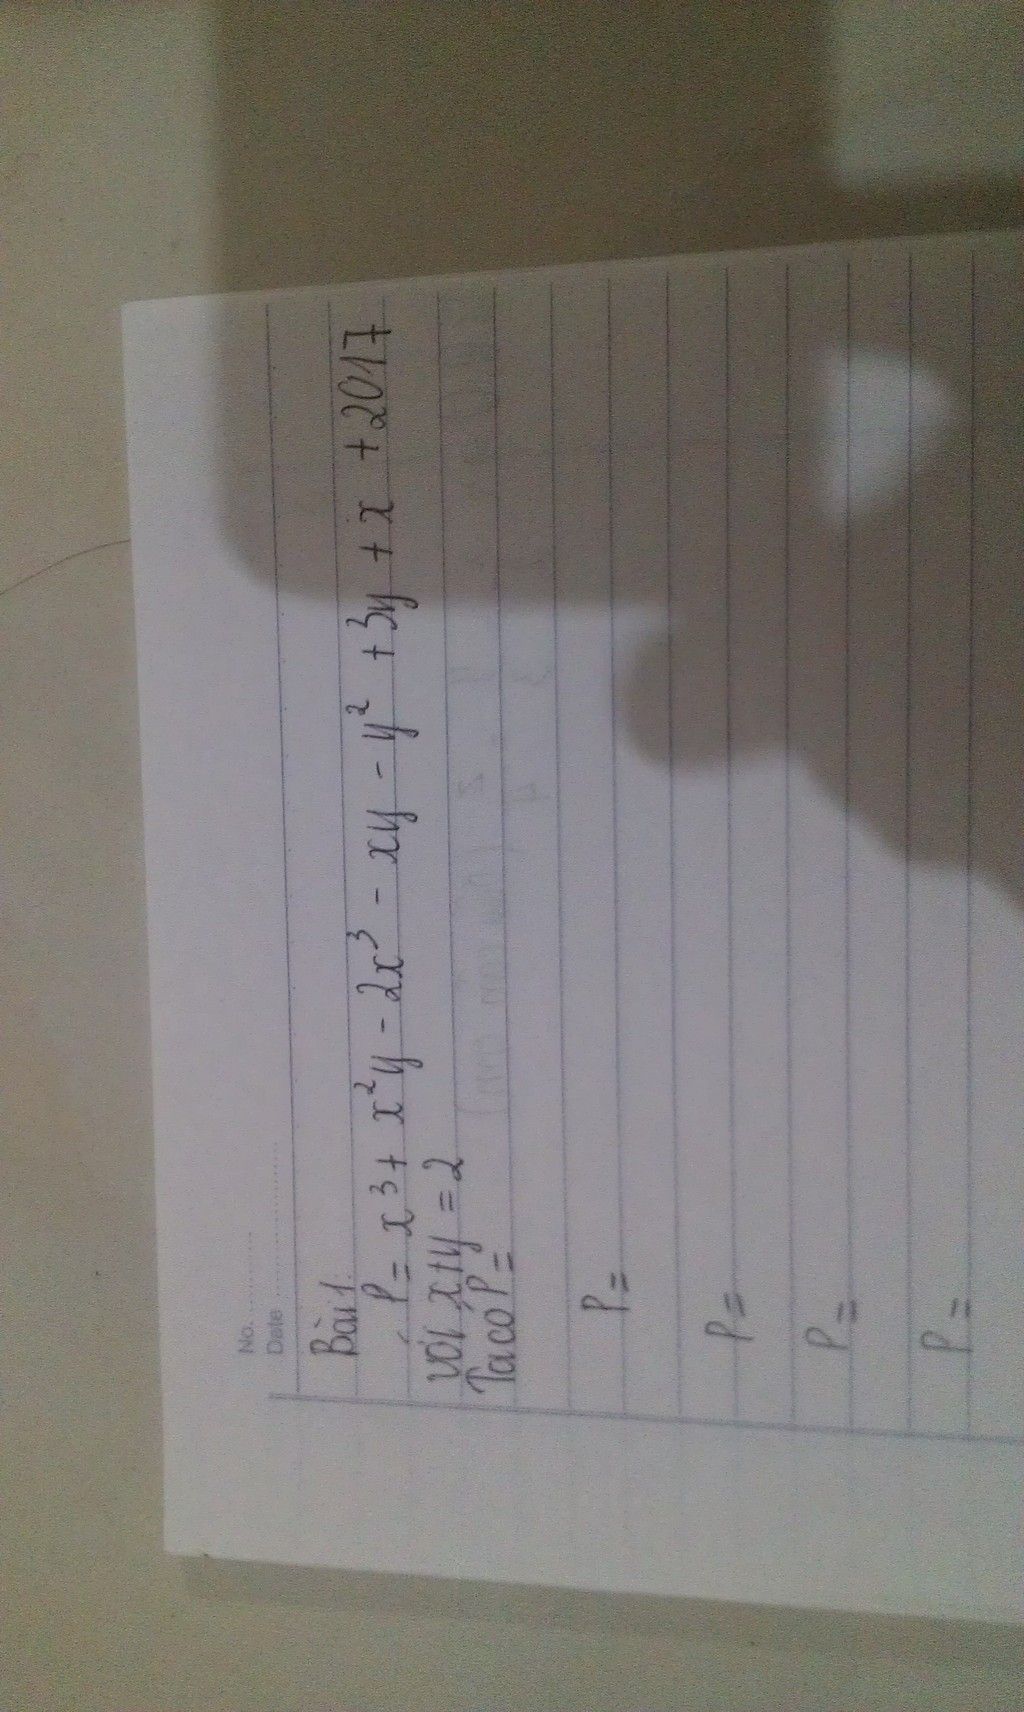 No. ............
Date ........................
Bài 1:
P = x³ + x²y - 2x³ - xy - y² + 3y + x + 2017
với x+y = 2
Ta có P =
P =
P =
P =
P =